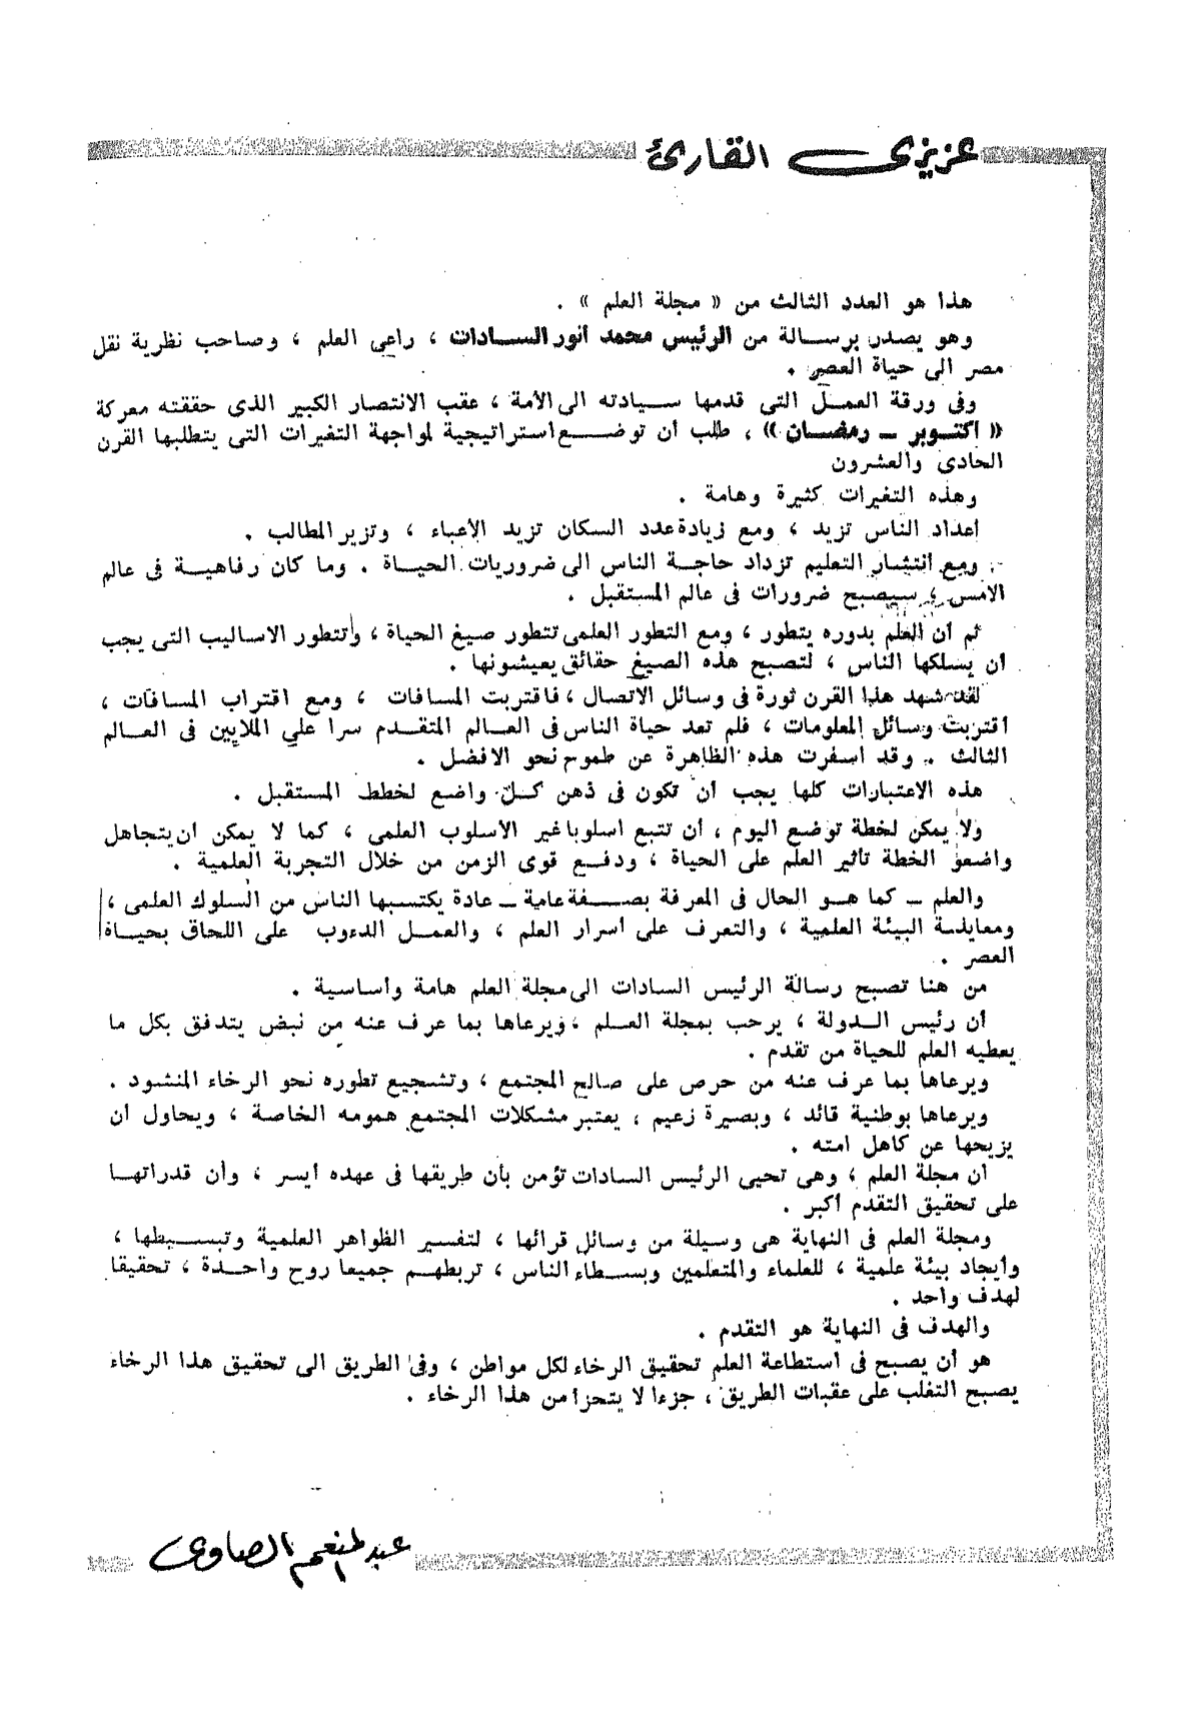 عزيزى القارئ
هذا هو العدد الثالث من « مجلة العلم » .
وهو يصدر برسالة من الرئيس محمد أنور السادات ، راعى العلم ، وصاحب نظرية نقل
مصر الى حياة العصر .
وفى ورقة العمل التى قدمها سيادته الى الأمة ، عقب الانتصار الكبير الذى حققته معركة
« أكتوبر ـ رمضان » ، طلب أن توضع استراتيجية لمواجهة التغيرات التى يتطلبها القرن
الحادى والعشرون
وهذه التغيرات كثيرة وهامة .
أعداد الناس تزيد ، ومع زيادة عدد السكان تزيد الأعباء ، وتزير المطالب .
ومع انتشار التعليم تزداد حاجة الناس الى ضروريات الحياة . وما كان رفاهية فى عالم
الأمس ، سيصبح ضرورات فى عالم المستقبل .
ثم أن العلم بدوره يتطور ، ومع التطور العلمى تتطور صيغ الحياة ، وتتطور الاساليب التى يجب
أن يسلكها الناس ، لتصبح هذه الصيغ حقائق يعيشونها .
لقد شهد هذا القرن ثورة فى وسائل الاتصال ، فاقتربت المسافات ، ومع اقتراب المسافات ،
اقتربت وسائل المعلومات ، فلم تعد حياة الناس فى العالم المتقدم سرا على الملايين فى العالم
الثالث . وقد أسفرت هذه الظاهرة عن طموح نحو الافضل .
هذه الاعتبارات كلها يجب أن تكون فى ذهن كل واضع لخطط المستقبل .
ولا يمكن لخطة توضع اليوم ، أن تتبع أسلوبا غير الأسلوب العلمى ، كما لا يمكن أن يتجاهل
واضعو الخطة تأثير العلم على الحياة ، ودفع قوى الزمن من خلال التجربة العلمية .
والعلم ـ كما هو الحال فى المعرفة بصفة عامة ـ عادة يكتسبها الناس من السلوك العلمى ،
ومعايشة البيئة العلمية ، والتعرف على أسرار العلم ، والعمل الدءوب على اللحاق بحياة
العصر .
من هنا تصبح رسالة الرئيس السادات الى مجلة العلم هامة وأساسية .
أن رئيس الدولة ، يرحب بمجلة العلم ، ويرعاها بما عرف عنه من نبض يتدفق بكل ما
يعطيه العلم للحياة من تقدم .
ويرعاها بما عرف عنه من حرص على صالح المجتمع ، وتشجيع تطوره نحو الرخاء المنشود .
ويرعاها بوطنية قائد ، وبصيرة زعيم ، يعتبر مشكلات المجتمع همومه الخاصة ، ويحاول أن
يزيحها عن كاهل أمته .
أن مجلة العلم ، وهى تحيى الرئيس السادات تؤمن بأن طريقها فى عهده أيسر ، وأن قدراتها
على تحقيق التقدم أكبر .
ومجلة العلم فى النهاية هى وسيلة من وسائل قرائها ، لتفسير الظواهر العلمية وتبسيطها ،
وأيجاد بيئة علمية ، للعلماء والمتعلمين وبسطاء الناس ، تربطهم جميعا روح واحدة ، تحقيقا
لهدف واحد .
والهدف فى النهاية هو التقدم .
هو أن يصبح فى استطاعة العلم تحقيق الرخاء لكل مواطن ، وفى الطريق الى تحقيق هذا الرخاء
يصبح التغلب على عقبات الطريق ، جزءا لا يتجزأ من هذا الرخاء .
عبد المنعم الصاوى